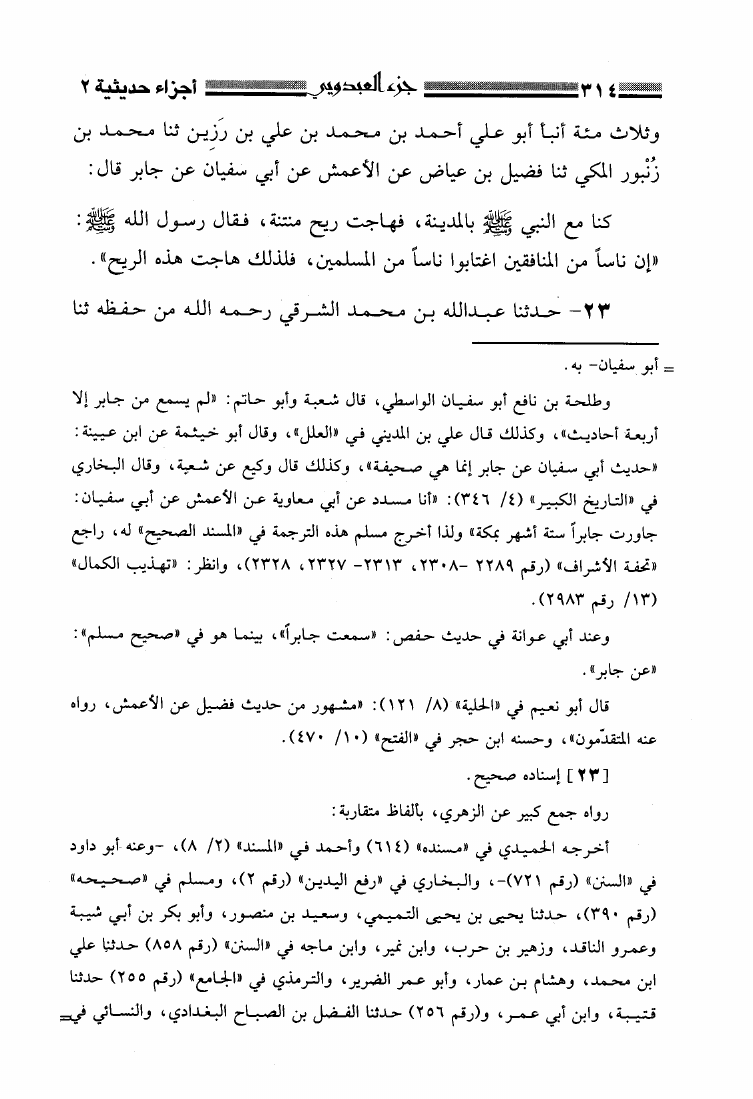 ٣١٤ جزء العبدويي أجزاء حديثية ٢
وثلاث مئة أنبأ أبو علي أحمد بن محمد بن علي بن رَزِين ثنا محمد بن
زُنْبور المكي ثنا فضيل بن عياض عن الأعمش عن أبي سفيان عن جابر قال:
كنا مع النبي ﷺ بالمدينة، فهاجت ريح منتنة، فقال رسول الله ﷺ:
«إن ناساً من المنافقين اغتابوا ناساً من المسلمين، فلذلك هاجت هذه الريح».
٢٣- حدثنا عبدالله بن محمد الشرقي رحمه الله من حفظه ثنا
= أبو سفيان- به.
وطلحة بن نافع أبو سفيان الواسطي، قال شعبة وأبو حاتم: «لم يسمع من جابر إلا
أربعة أحاديث»، وكذلك قال علي بن المديني في «العلل»، وقال أبو خيثمة عن ابن عيينة:
«حديث أبي سفيان عن جابر إنما هي صحيفة»، وكذلك قال وكيع عن شعبة، وقال البخاري
في «التاريخ الكبير» (٤/ ٣٤٦): «أنا مسدد عن أبي معاوية عن الأعمش عن أبي سفيان:
جاورت جابراً ستة أشهر بمكة» ولذا أخرج مسلم هذه الترجمة في «المسند الصحيح» له، راجع
«تحفة الأشراف» (رقم ٢٢٨٩ -٢٣٠٨، ٢٣١٣- ٢٣٢٧، ٢٣٢٨)، وانظر: «تهذيب الكمال»
(١٣/ رقم ٢٩٨٣).
وعند أبي عوانة في حديث حفص: «سمعت جابراً»، بينما هو في «صحيح مسلم»:
«عن جابر».
قال أبو نعيم في «الحلية» (٨/ ١٢١): «مشهور من حديث فضيل عن الأعمش، رواه
عنه المتقدّمون»، وحسنه ابن حجر في «الفتح» (١٠/ ٤٧٠).
[٢٣] إسناده صحيح.
رواه جمع كبير عن الزهري، بألفاظ متقاربة:
أخرجه الحميدي في «مسنده» (٦١٤) وأحمد في «المسند» (٢/ ٨)، -وعنه أبو داود
في «السنن» (رقم ٧٢١)-، والبخاري في «رفع اليدين» (رقم ٢)، ومسلم في «صحيحه»
(رقم ٣٩٠)، حدثنا يحيى بن يحيى التميمي، وسعيد بن منصور، وأبو بكر بن أبي شيبة
وعمرو الناقد، وزهير بن حرب، وابن نمير، وابن ماجه في «السنن» (رقم ٨٥٨) حدثنا علي
ابن محمد، وهشام بن عمار، وأبو عمر الضرير، والترمذي في «الجامع» (رقم ٢٥٥) حدثنا
قتيبة، وابن أبي عمر، و(رقم ٢٥٦) حدثنا الفضل بن الصباح البغدادي، والنسائي في=